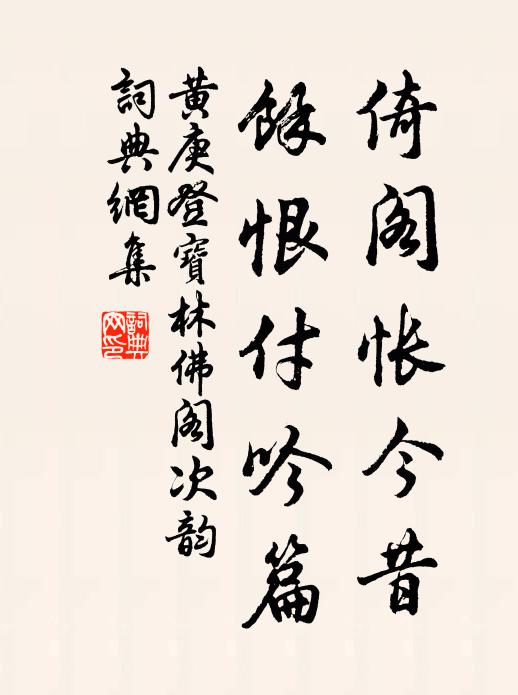 倚阁悵今昔
餘恨付吟篇
黄庚登寳林佛阁次韵
詞典網集
詞典網印